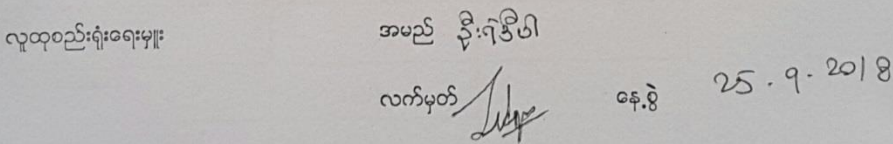 လူထုစည်းရုံးရေးမှူး အမည် ဦးရဲဒီပါ
လက်မှတ် နေ့စွဲ 25.9.2018